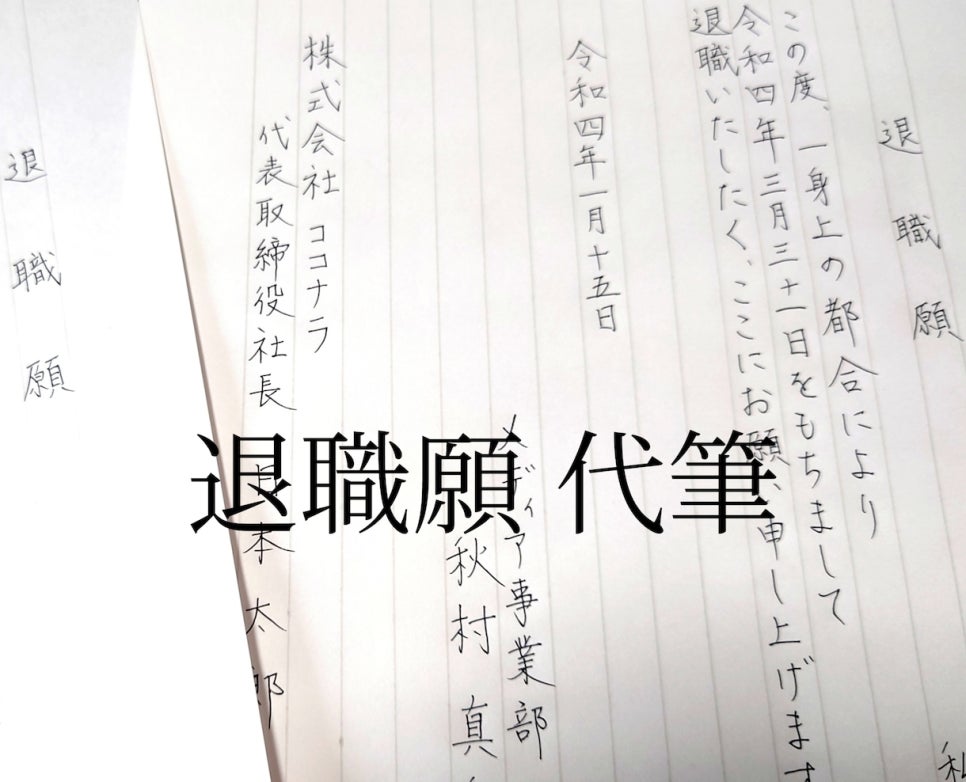 退職願
私
この度、一身上の都合により
令和四年三月三十一日をもちまして
退職いたしたく、ここにお願い申し上げます
令和四年一月十五日
メディア事業部
秋村 真
株式会社 ココナラ
代表取締役社長 本 太郎
退職願
退職願 代筆